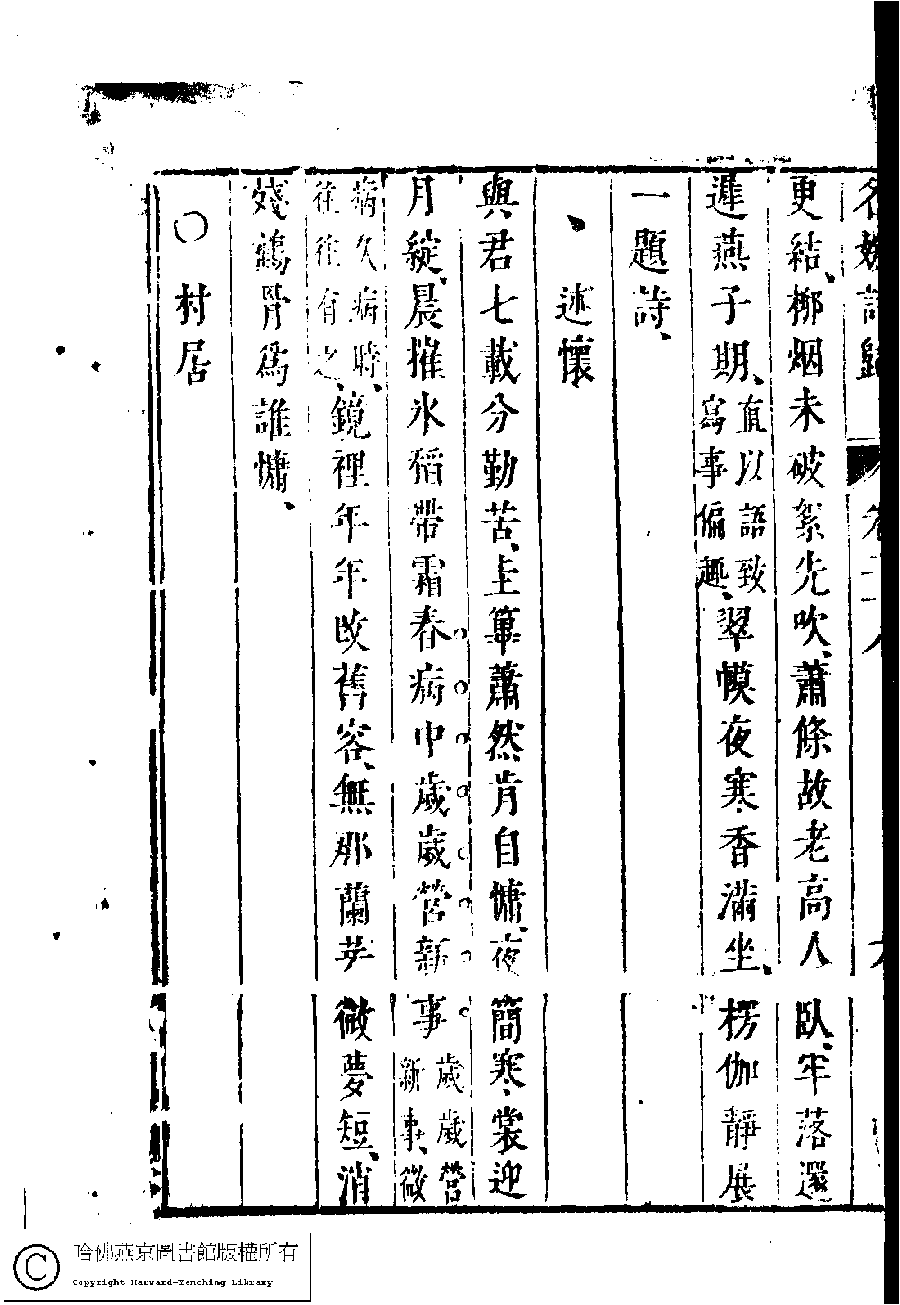 名媛詩歸 卷二十八
更結、柳烟未破絮先吹、蕭條故老高人臥、牢落還
遲燕子期、直以語致寫事偏趣、翠幙夜寒香滿坐、楞伽靜展
一題詩、
述懷
與君七載分勤苦、圭篳蕭然肯自慵、夜簡寒裳迎
月綻、晨摧氷稻帶霜舂、病中歲歲營新事歲歲營新事、微
病久病時、往往有之、鏡裡年年改舊容、無那蘭芽微夢短、消
殘鶴骨爲誰慵、
○村居
哈佛燕京圖書館版權所有
Copyright Harvard-Yenching Library